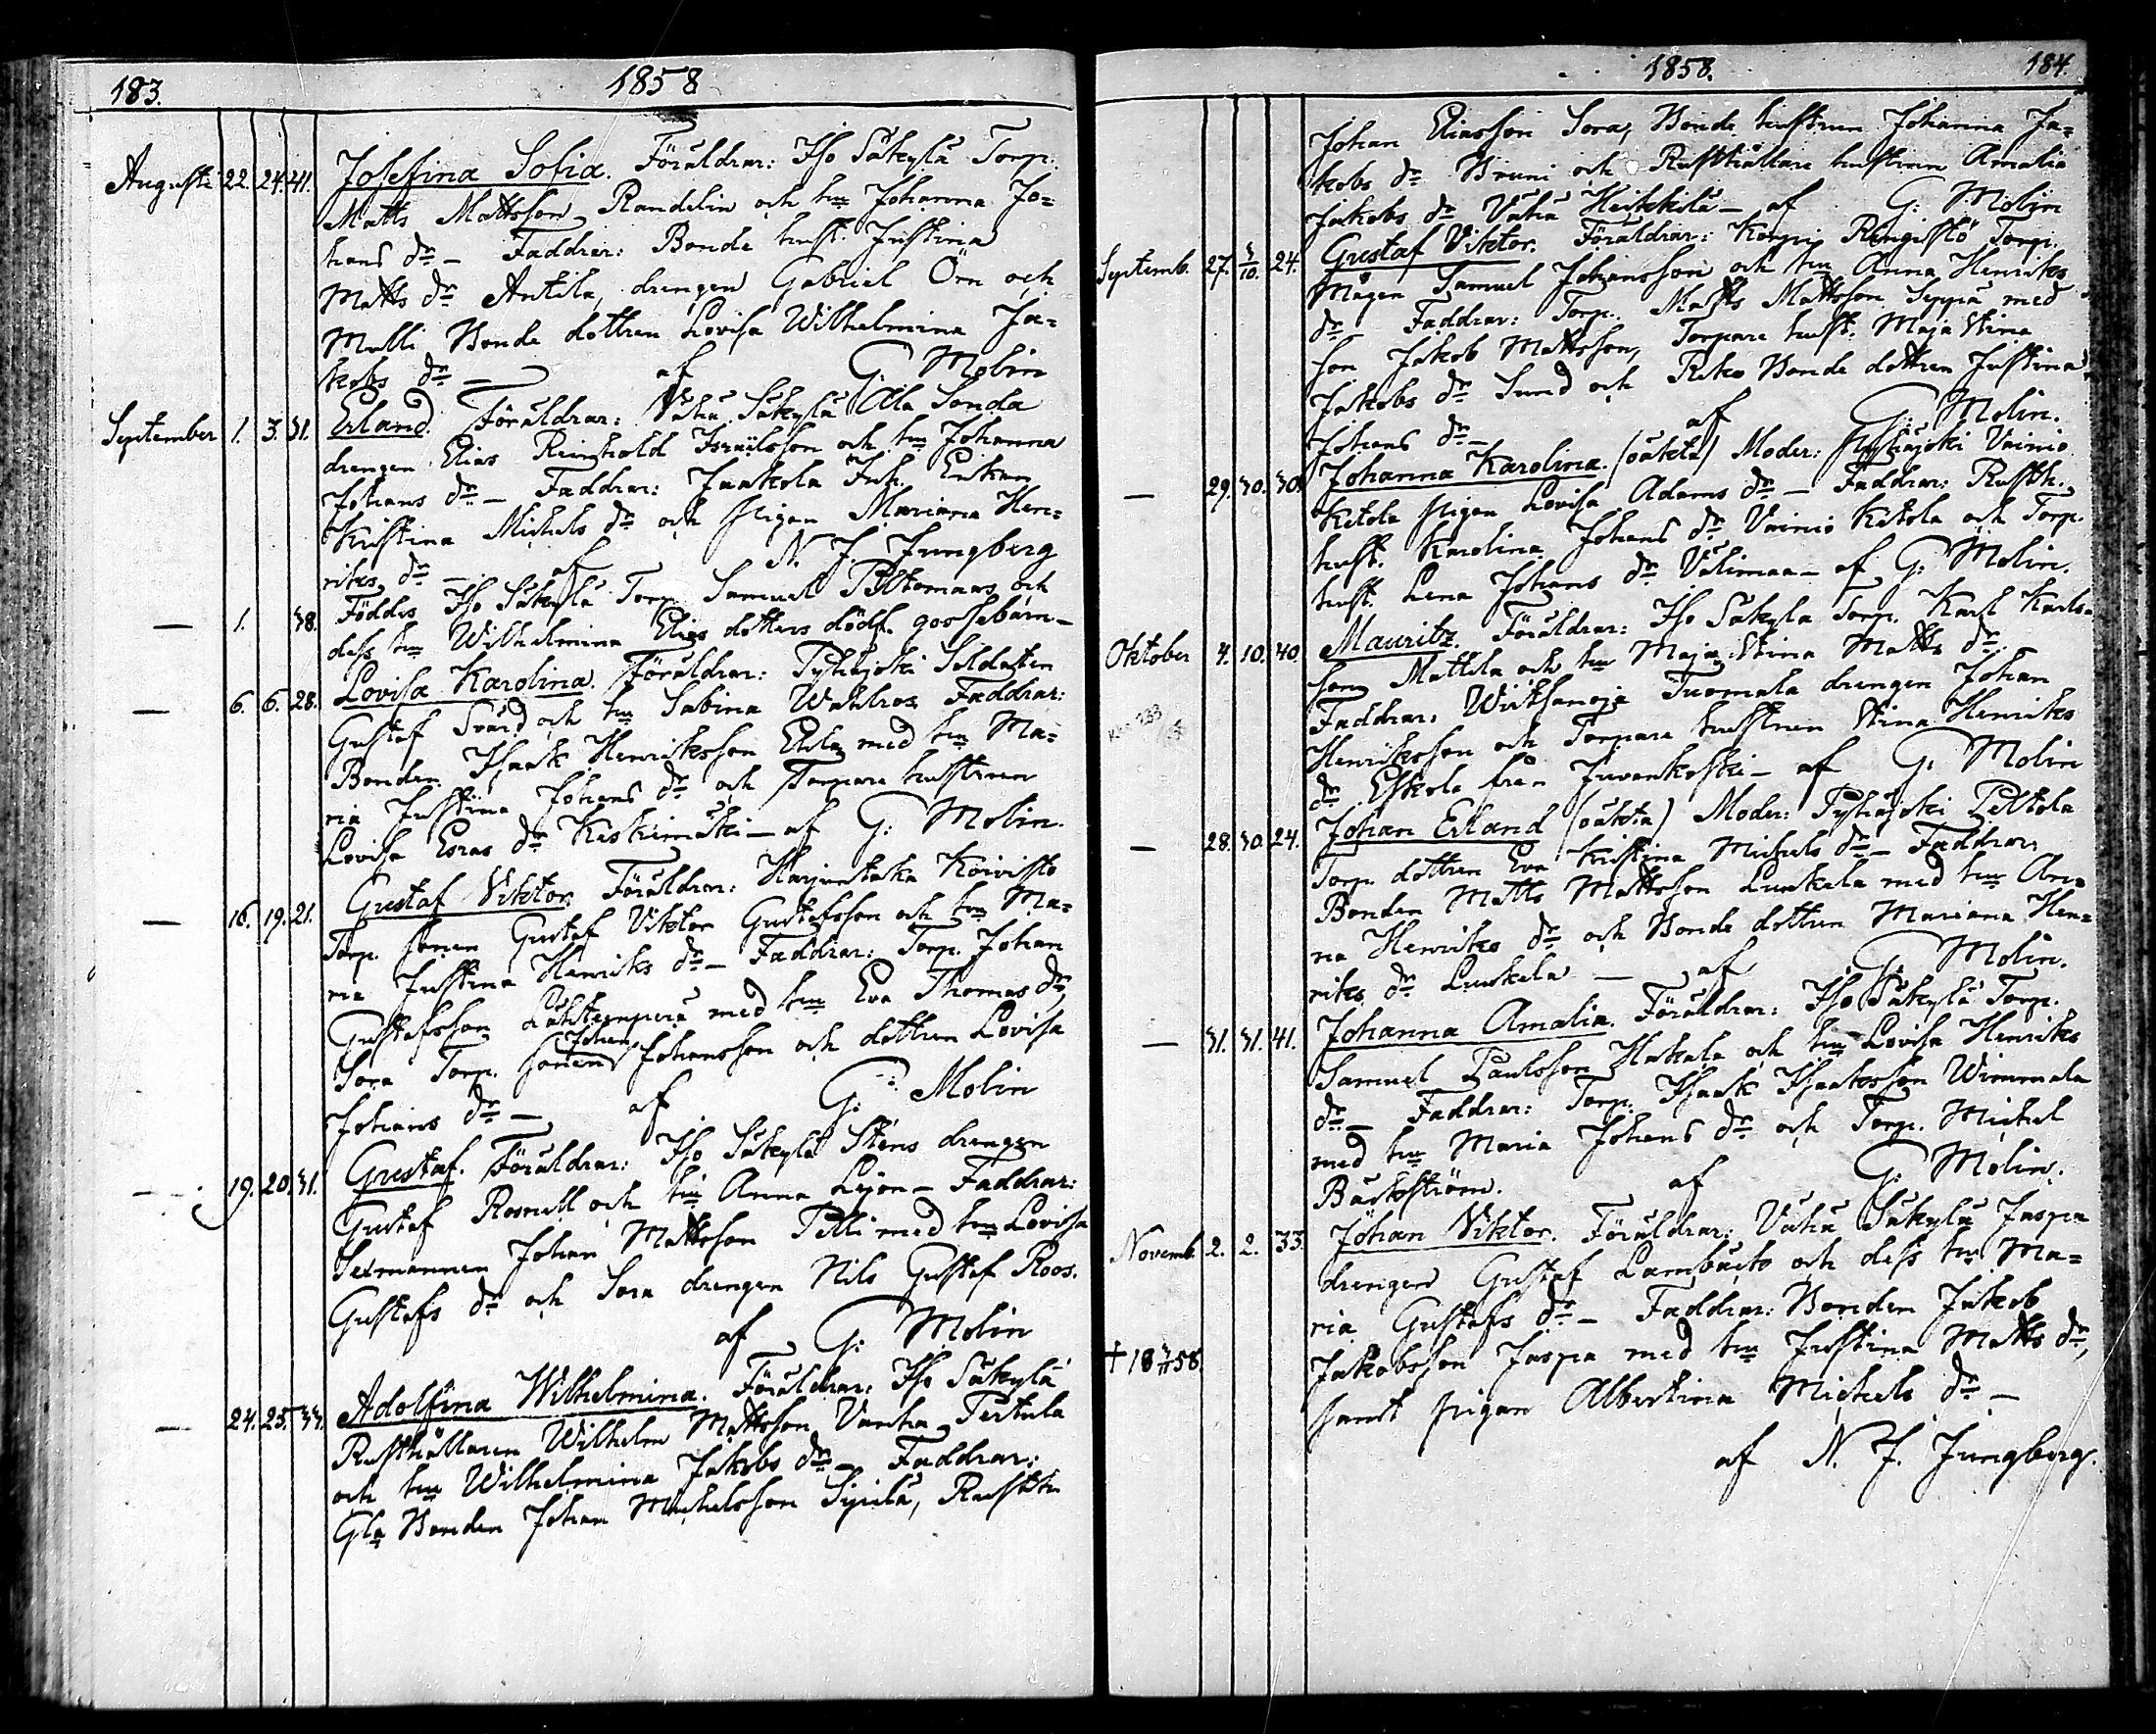 183.
1858
Augusti 22. 24. 41. Josefina Sofia. Föräldrar: Iso Säkylä Torp.
Matts Mattsson Randelin och hu Johanna Jo=
hans dr – Faddrar: Bonde hust. Justina
Matts dr Antila, drengen Gabriel Örn och
Mulli Bonde dottren Lovisa Wilhelmina Ja=
kobs dr – af G. Molin
September 1. 3. 31. Erland. Föräldrar: Vähä Säkylä Ala Sonda
drengen Elias Reinhold Israilsson och hu Johanna
Johans dr – Faddrar: Jaakola Inh. Enkan
Kristina Michels dr och pigan Mariana Hen=
riks dr – af N. J. Jungberg
— 1. 38. Föddes Iso Säkylä Torp. Samuel Piltomaas och
dess hu Wilhelmina Elias dotters dödf. gossebarn –
— 6. 6. 28. Lovisa Karolina. Föräldrar: Pyhäjoki Soldaten
Gustaf Svärd och hu Sabina Wahlros Faddrar:
Bonden Isaak Henriksson Eklä med hu Ma=
ria Justina Johans dr och Torpare hustrun
Lovisa Esras dr Keskimäki – af G. Molin.
— 16. 19. 21. Gustaf Viktor. Föräldrar: Harjunkaka Koivisto
Torp. sonen Gustaf Viktor Gustafsson och hu Ma=
ria Justina Henriks dr – Faddrar: Torp. Johan
Gustafsson Lähteenperä med hu Eva Thomas dr,
Johan
Sora Torp. sonen Johansson och dottren Lovisa
Johans dr – af G. Molin
— 19. 20. 31. Gustaf. Föräldrar: Iso Säkylä Stens drengen
Gustaf Rosnell och hu Anna Lejon – Faddrar:
Sexmannen Johan Mattsson Pilli med hu Lovisa
Gustafs dr och Sora drengen Nils Gustaf Roos.
af G. Molin
— 24. 25. 33. Adolfina Wilhelmina. Föräldrar: Iso Säkylä
Rusthållaren Wilhelm Mattsson Vanha Pertula
och hu Wilhelmina Jakobs dr – Faddrar:
Gla Bonden Johan Michelsson Sipilä, Rusth
1858.
184.
Johan Eliasson Sora, Bonde hustrun Johanna Ja=
kobs dr Bruni och Rusthållare hustrun Amalia
Jakobs dr Vähä Heikkilä – af G: Molin
Septemb. 27. 3/10. 24. Gustaf Viktor. Föräldrar: Korpi Ringistö Torp.
Mågen Samuel Johansson och hu Anna Henriks
dr – Faddrar: Torp. Matts Mattsson Seppä med
son Jakob Mattsson, Torpare hust. Maja Stina
Jakobs dr Sund och Riko Bonde dottren Justina
Johans dr – af G. Molin.
— 29. 30. 30. Johanna Karolina. (oäkta) Moder: Pyhäjoki Vainio
Ketola pigan Lovisa Adams dr – Faddrar: Rusth.
hust. Karolina Johans dr Vainio Ketola och Torp.
hust. Lena Johans dr Välimaa – af G. Molin.
Oktober 4. 10. 40. Mauritz. Föräldrar: Iso Säkylä Torp. Karl Karls=
son Mattila och hu Maja Stina Matts dr
Faddrar: Wirtsanoja Tuomala drengen Johan
Henriksson och Torpare hustrun Stina Henriks
dr Eskola från Juvankoski – af G. Molin
— 28. 30. 24. Johan Erland (oäkta) Moder: Pyhäjoki Peltola
Torp. dottren Eva Kristina Michels dr – Faddrar:
Bonden Matts Mattsson Luukela med hu An=
na Henriks dr och Bonde dottren Mariana Hen=
riks dr Luukela – af G. Molin.
— 31. 31. 41. Johanna Amalia. Föräldrar: Iso Säkylä Torp.
Samuel Paulsson Hakala och hu Lovisa Henriks
dr – Faddrar: Torp. Isaak Isaaksson Wimmala
med hu Maria Johans dr och Torp. Michel
Backström. af G. Molin.
Novemb. 2. 2. 33. Johan Viktor. Föräldrar: Vähä Säkylä Jaspa
drengen Gustaf Lambacko och dess hu Ma=
ria Gustafs dr – Faddrar: Bonden Jakob
† 18 58. Jakobsson Jaspa med hu Justina Matts dr,
samt pigan Albertina Michels dr –
af N. J. Jungberg.